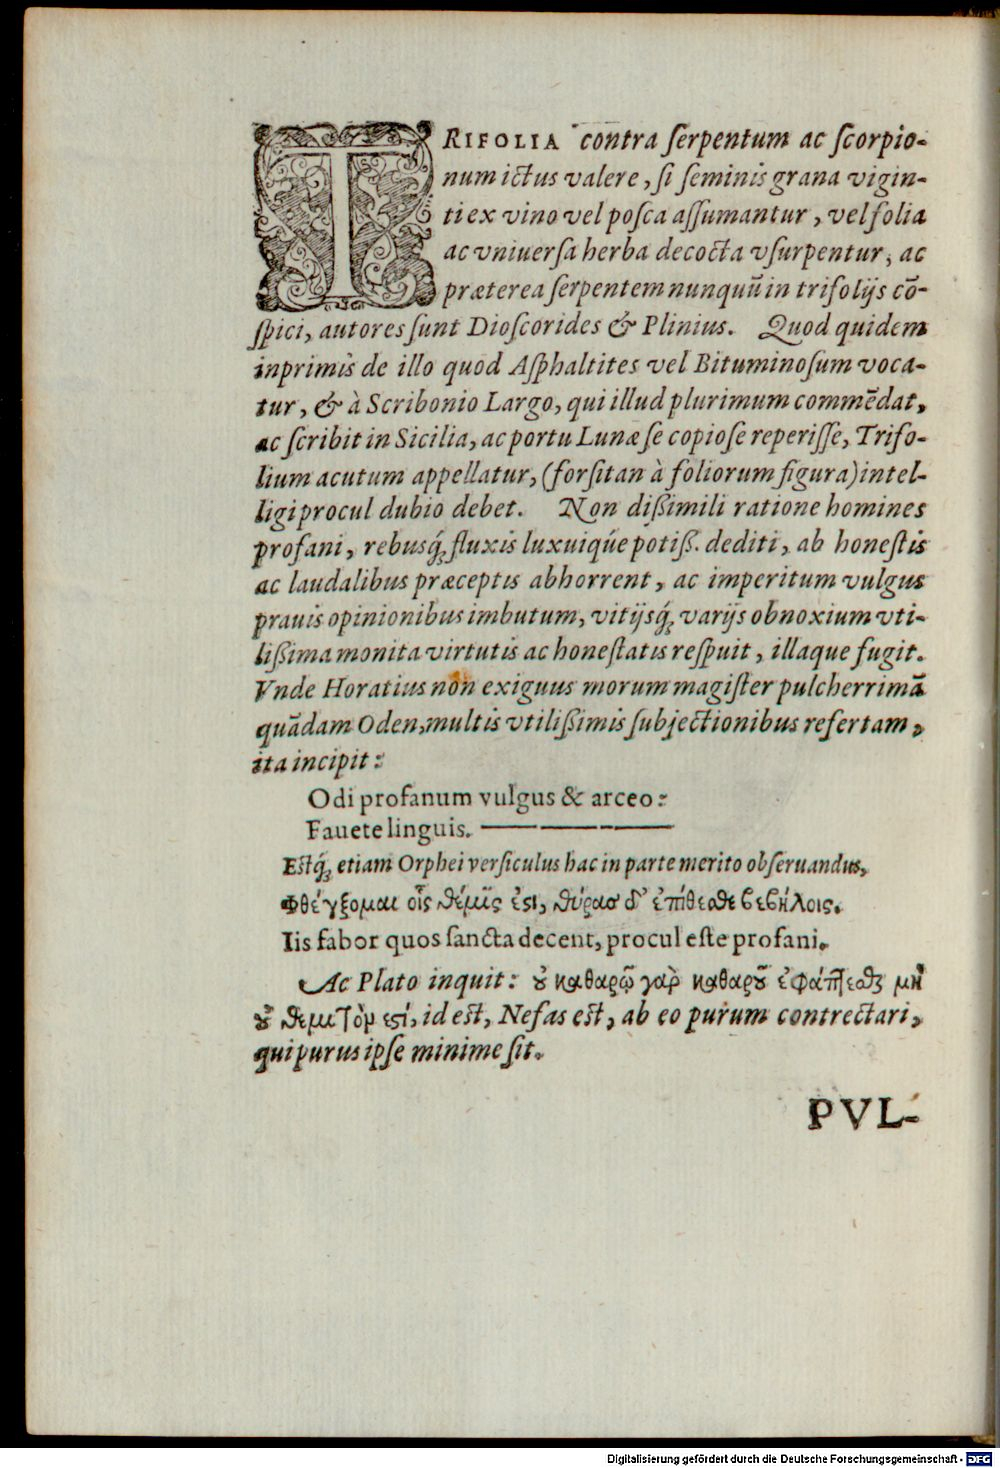 TRIFOLIA contra ſerpentum ac ſcorpio-
num ictus valere, ſi ſeminis grana vigin-
ti ex vino vel poſca aſſumantur, vel folia
ac vniuerſa herba decocta vſurpentur, ac
præterea ſerpentem nunquũ in trifolijs cō-
ſpici, autores ſunt Dioſcorides & Plinius. Quod quidem
inprimis de illo quod Aſphaltites vel Bituminoſum voca-
tur, & à Scribonio Largo, qui illud plurimum commẽdat,
ac ſcribit in Sicilia, ac portu Lunæ ſe copioſe reperiſſe, Trifo-
lium acutum appellatur, (forſitan à foliorum figura) intel-
ligi procul dubio debet. Non dißimili ratione homines
profani, rebusq́ꝫ fluxis luxuiq́ue potiß. dediti, ab honeſtis
ac laudalibus præceptis abhorrent, ac imperitum vulgus
prauis opinionibus imbutum, vitijsq́ꝫ varijs obnoxium vti-
lißima monita virtutis ac honeſtatis reſpuit, illaque fugit.
Vnde Horatius non exiguus morum magiſter pulcherrimã
quãdam Oden, multis vtilißimis ſubjectionibus refertam,
ita incipit:
Odi profanum vulgus & arceo:
Fauete linguis.
Eſtq́ꝫ etiam Orphei verſiculus hac in parte merito obſeruandus,
Φθέγξομαι οἷς θέμις ἐςι, θύρας δ' ἐπίθεσθε βεβήλοις.
Iis fabor quos ſancta decent, procul eſte profani.
Ac Plato inquit: ȣ̓ καθαρῷ γὰρ καθαρȣ͂ ἐφάπτεσθαι μὴ
ȣ̓ θεμιτὸν ἐςί, id eſt, Nefas eſt, ab eo purum contrectari,
qui purus ipſe minime ſit.
PVL-
Digitalisierung gefördert durch die Deutsche Forschungsgemeinschaft - DFG